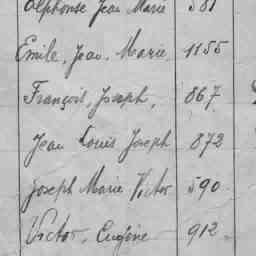 Alphonse Jean Marie 581
Emile, Jean, Marie, 1155
François, Joseph, 867
Jean Louis Joseph 872
Joseph Marie Victor 590
Victor, Eugène 912